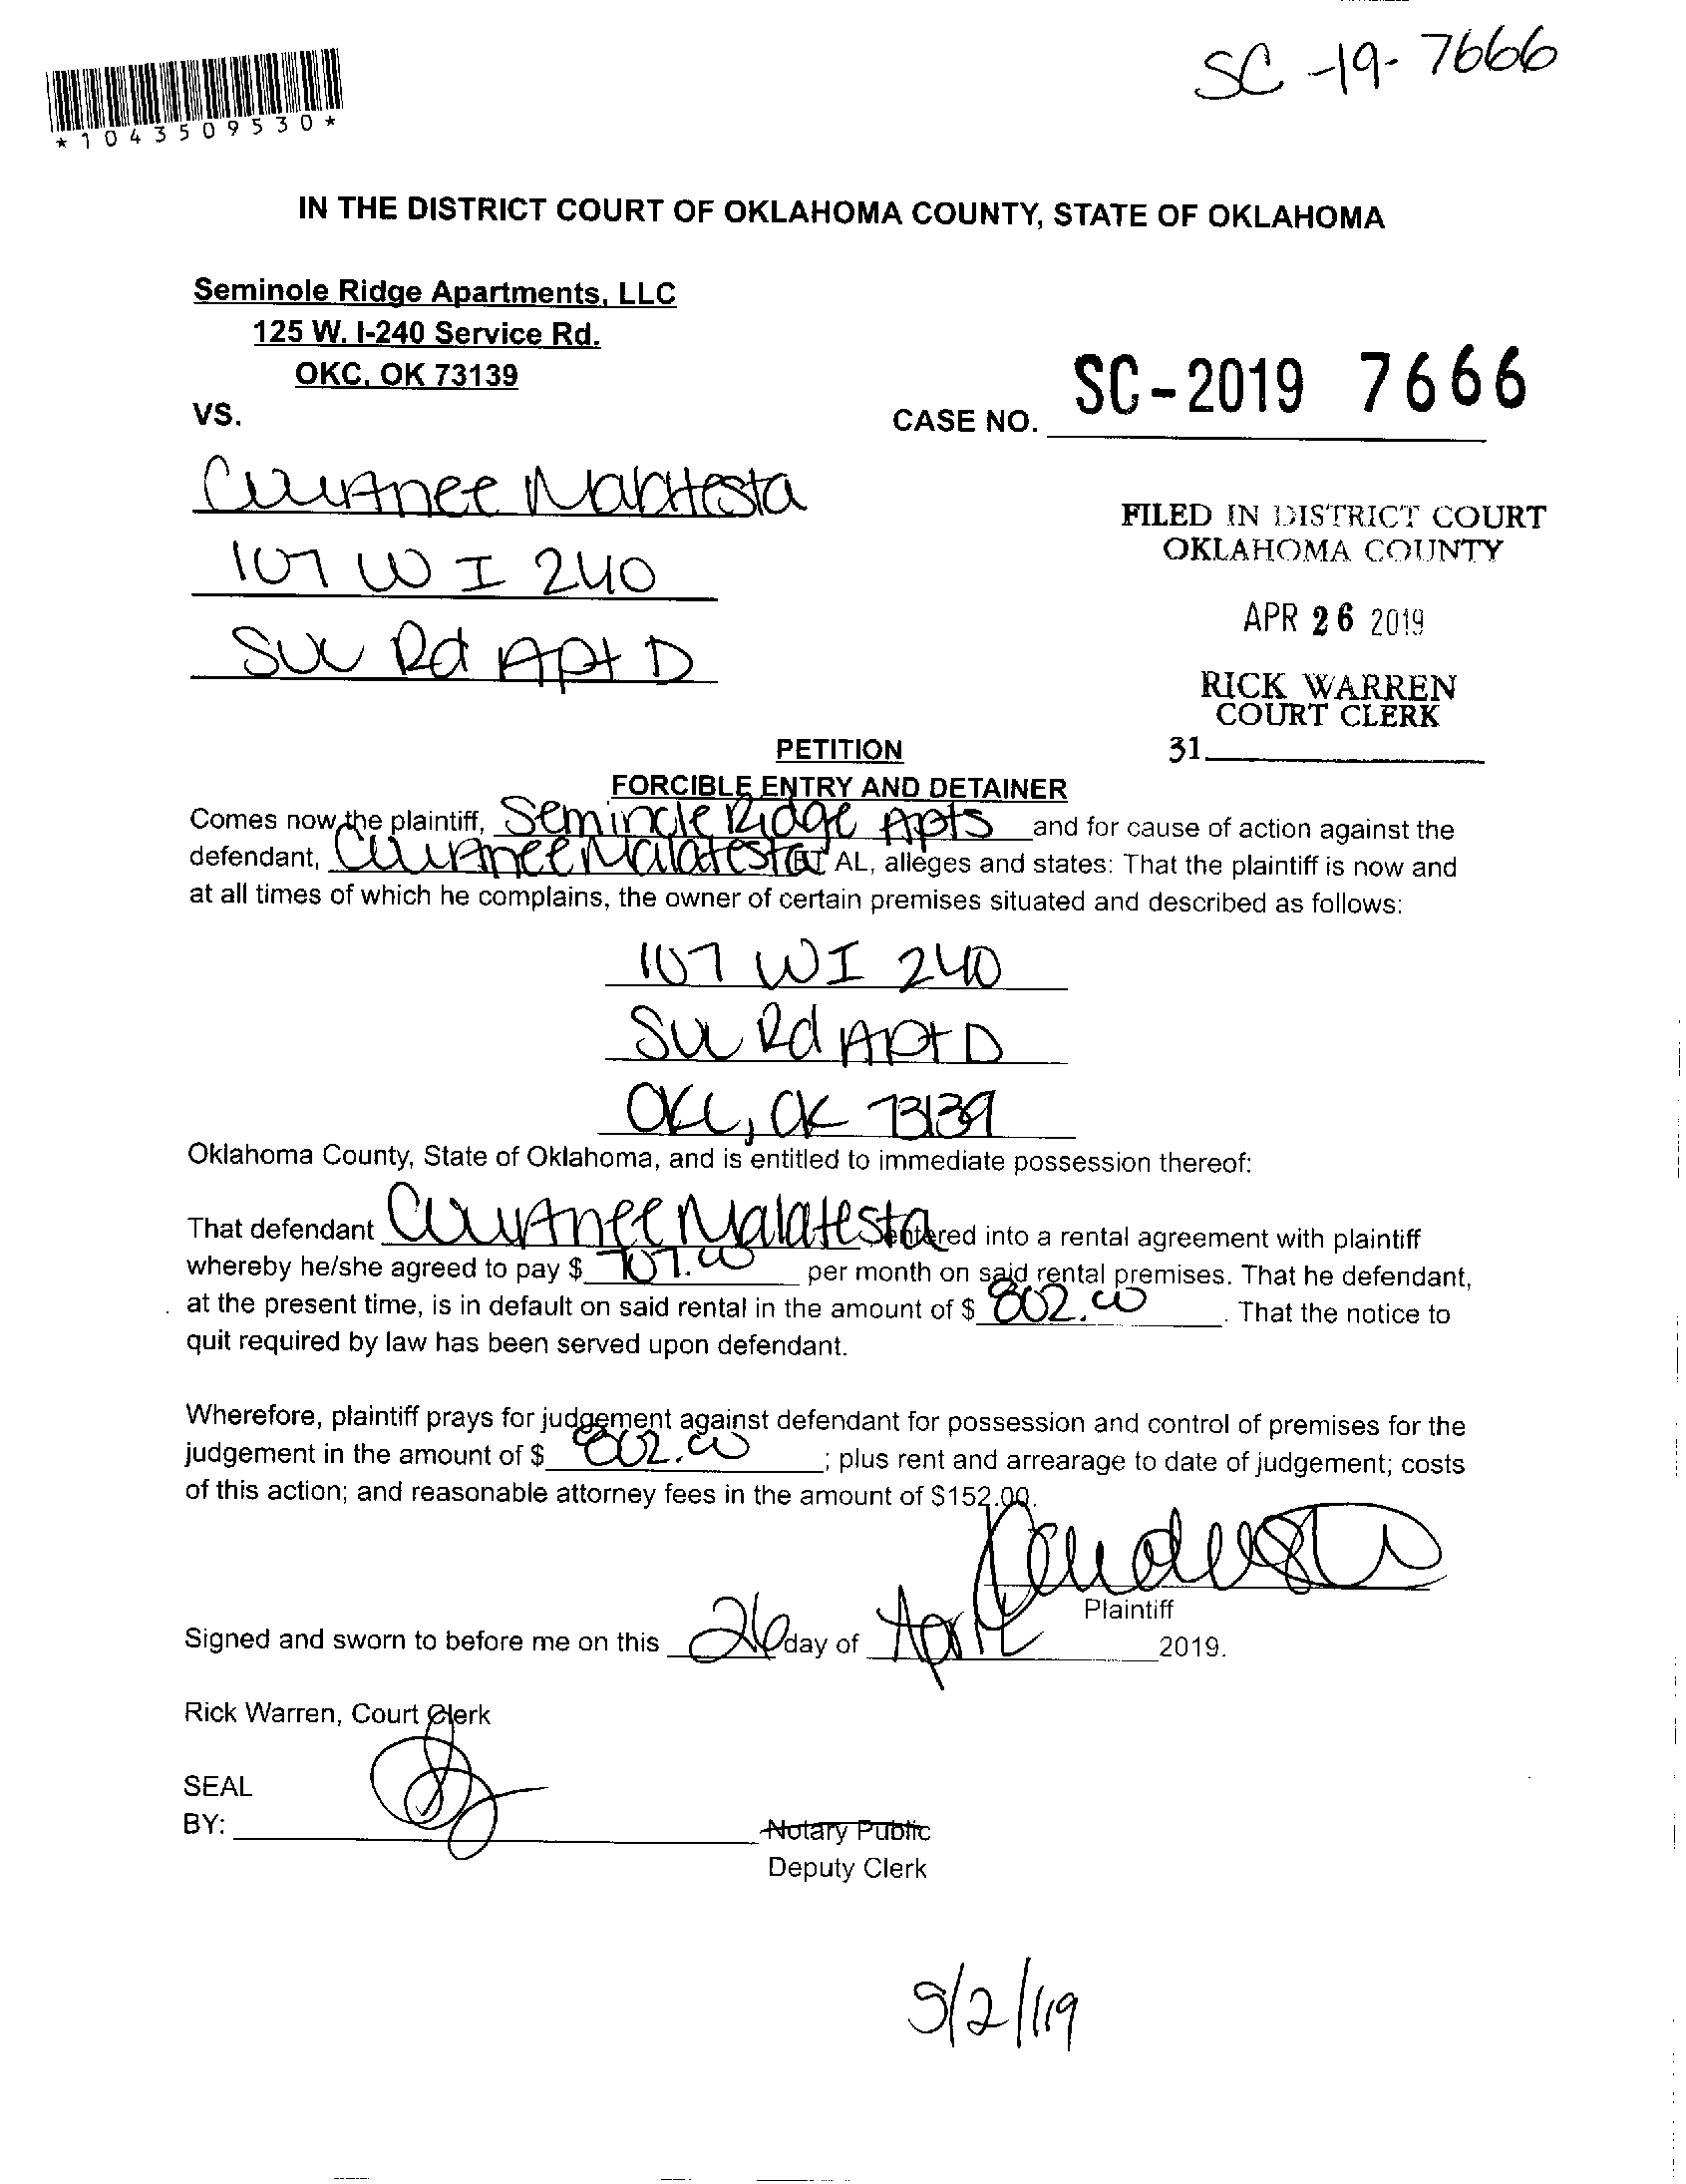 SC-19-7666
*1043509530*
IN THE DISTRICT COURT OF OKLAHOMA COUNTY, STATE OF OKLAHOMA
Seminole Ridge Apartments, LLC
125 W. I-240 Service Rd.
OKC, OK 73139
VS.
CASE NO. SC-2019 7666
Malatesta
107 W I 240
Svc Rd Apt D
FILED IN DISTRICT COURT
OKLAHOMA COUNTY
APR 26 2019
RICK WARREN
COURT CLERK
31
PETITION
FORCIBLE ENTRY AND DETAINER
Comes now the plaintiff, Seminole Ridge Apts and for cause of action against the
defendant, Malatesta ET AL, alleges and states: That the plaintiff is now and
at all times of which he complains, the owner of certain premises situated and described as follows:
107 W I 240
Svc Rd Apt D
OKC, OK 73139
Oklahoma County, State of Oklahoma, and is entitled to immediate possession thereof:
That defendant Malatesta, entered into a rental agreement with plaintiff
whereby he/she agreed to pay $ 707.00 per month on said rental premises. That he defendant,
at the present time, is in default on said rental in the amount of $ 802.00. That the notice to
quit required by law has been served upon defendant.
Wherefore, plaintiff prays for judgement against defendant for possession and control of premises for the
judgement in the amount of $ 802.00; plus rent and arrearage to date of judgement; costs
of this action; and reasonable attorney fees in the amount of $152.00.
Plaintiff
Signed and sworn to before me on this 26 day of April 2019.
Rick Warren, Court Clerk
SEAL
BY:
Notary Public
Deputy Clerk
5/2/19